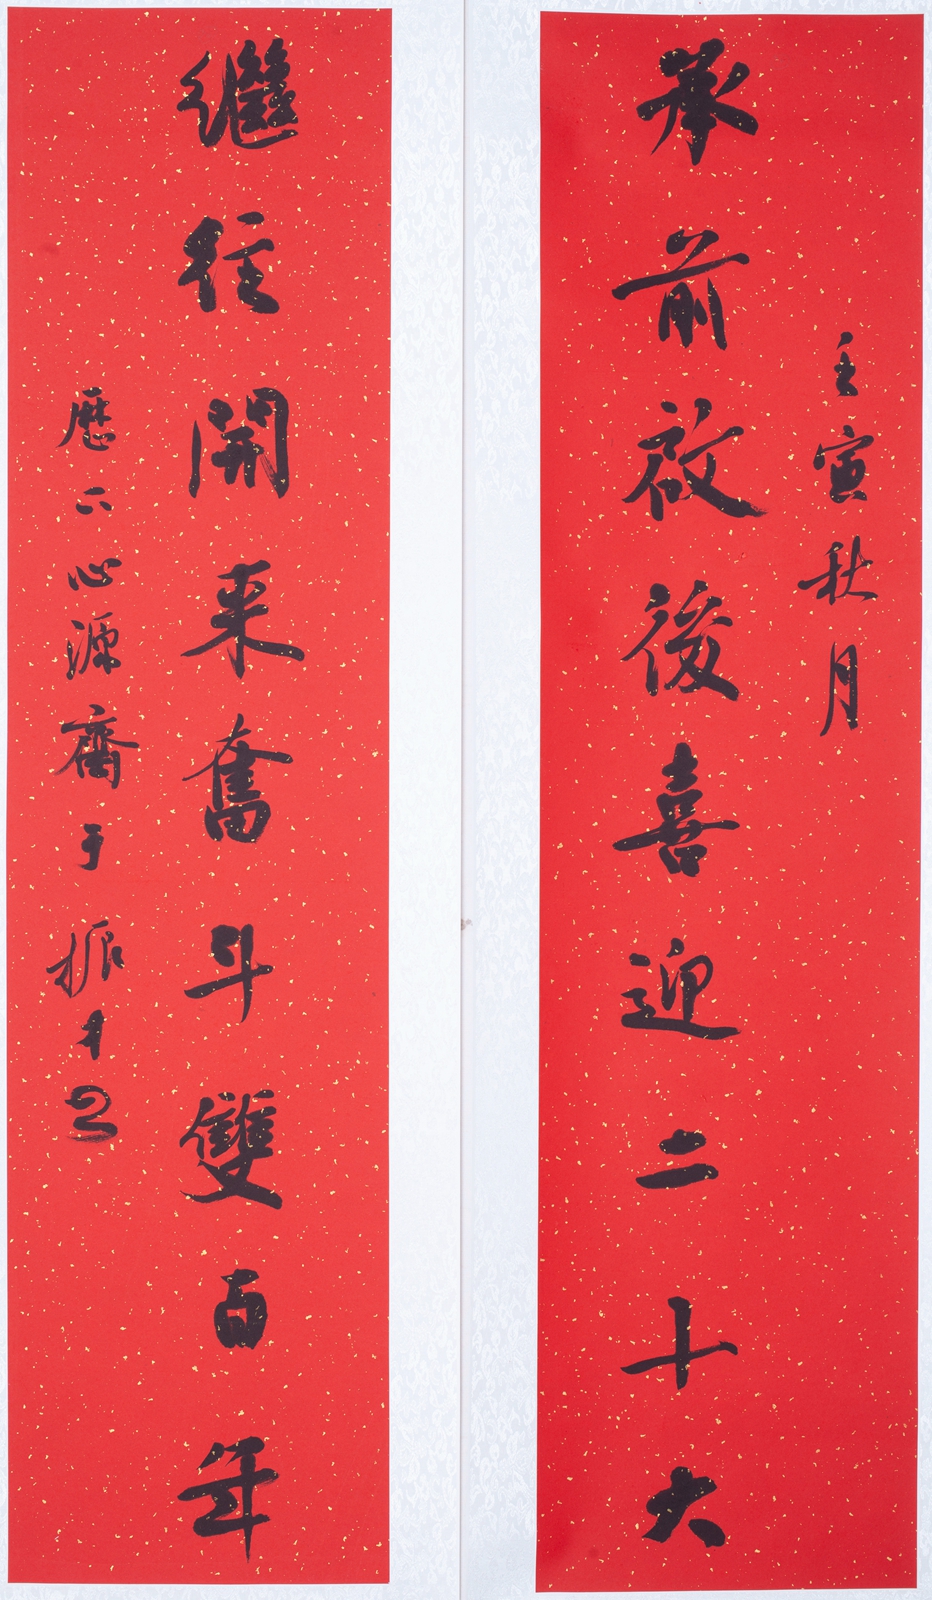 壬寅秋月
承前啟後喜迎二十大
繼往開来奮斗雙百年
歷下心源齋于振才书